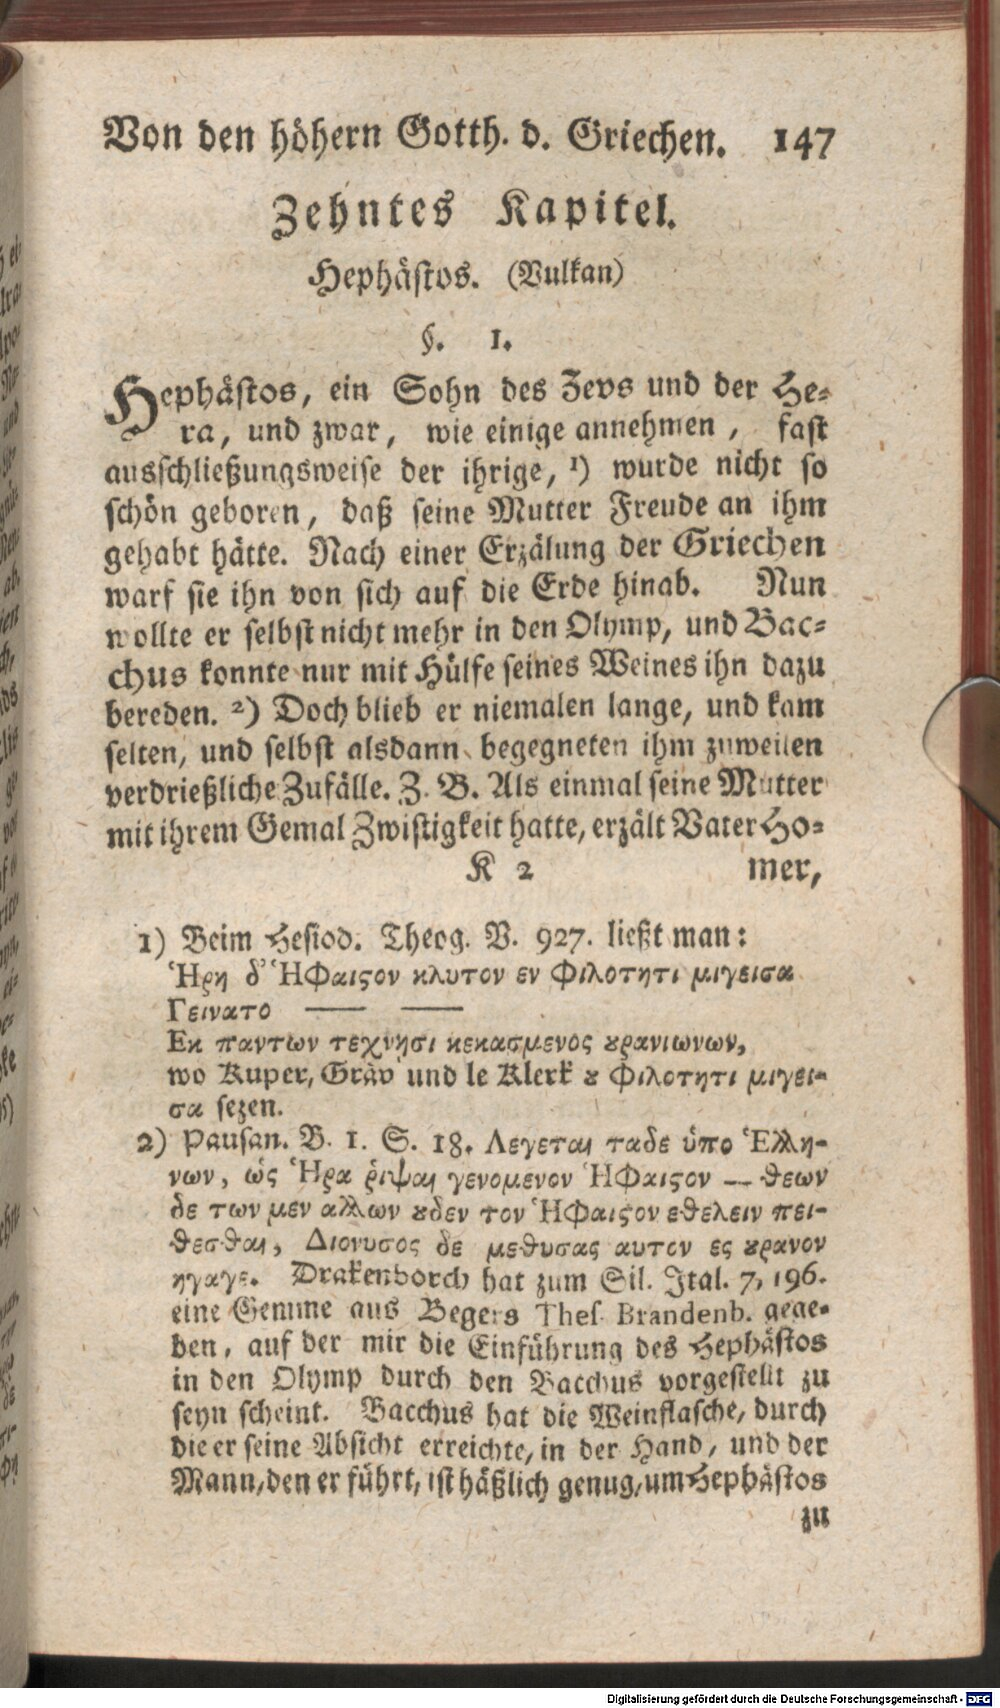 Von den höhern Gotth. d. Griechen. 147
Zehntes Kapitel.
Hephästos. (Vulkan)
§. 1.
Hephästos, ein Sohn des Zevs und der He-
ra, und zwar, wie einige annehmen, fast
ausschließungsweise der ihrige, 1) wurde nicht so
schön geboren, daß seine Mutter Freude an ihm
gehabt hätte. Nach einer Erzälung der Griechen
warf sie ihn von sich auf die Erde hinab. Nun
wollte er selbst nicht mehr in den Olymp, und Bac-
chus konnte nur mit Hülfe seines Weines ihn dazu
bereden. 2) Doch blieb er niemalen lange, und kam
selten, und selbst alsdann begegneten ihm zuweilen
verdrießliche Zufälle. Z. B. Als einmal seine Mutter
mit ihrem Gemal Zwistigkeit hatte, erzält Vater Ho-
K 2 mer,
1) Beim Hesiod. Theog. V. 927. ließt man:
Ἡρη δ' Ἡφαιϛον κλυτον εν φιλοτητι μιγεισα
Γεινατο — —
Εκ παντων τεχνησι κεκασμενος ȣρανιωνων,
wo Kuper, Gräv und le Klerk ȣ φιλοτητι μιγει-
σα sezen.
2) Pausan. B. 1. S. 18. Λεγεται ταδε ὑπο Ἑλλη-
νων, ὡς Ἡρα ῥιψαι γενομενον Ἡφαιϛον — θεων
δε των μεν αλλων ȣδεν τον Ἡφαιϛον εθελειν πει-
θεσθαι, Διονυσος δε μεθυσας αυτον ες ȣρανον
ηγαγε. Drakenborch hat zum Sil. Ital. 7, 196.
eine Gemme aus Begers Thes. Brandenb. gege-
ben, auf der mir die Einführung des Hephästos
in den Olymp durch den Bacchus vorgestellt zu
seyn scheint. Bacchus hat die Weinflasche, durch
die er seine Absicht erreichte, in der Hand, und der
Mann, den er führt, ist häßlich genug, um Hephästos
zu
Digitalisierung gefördert durch die Deutsche Forschungsgemeinschaft - DFG